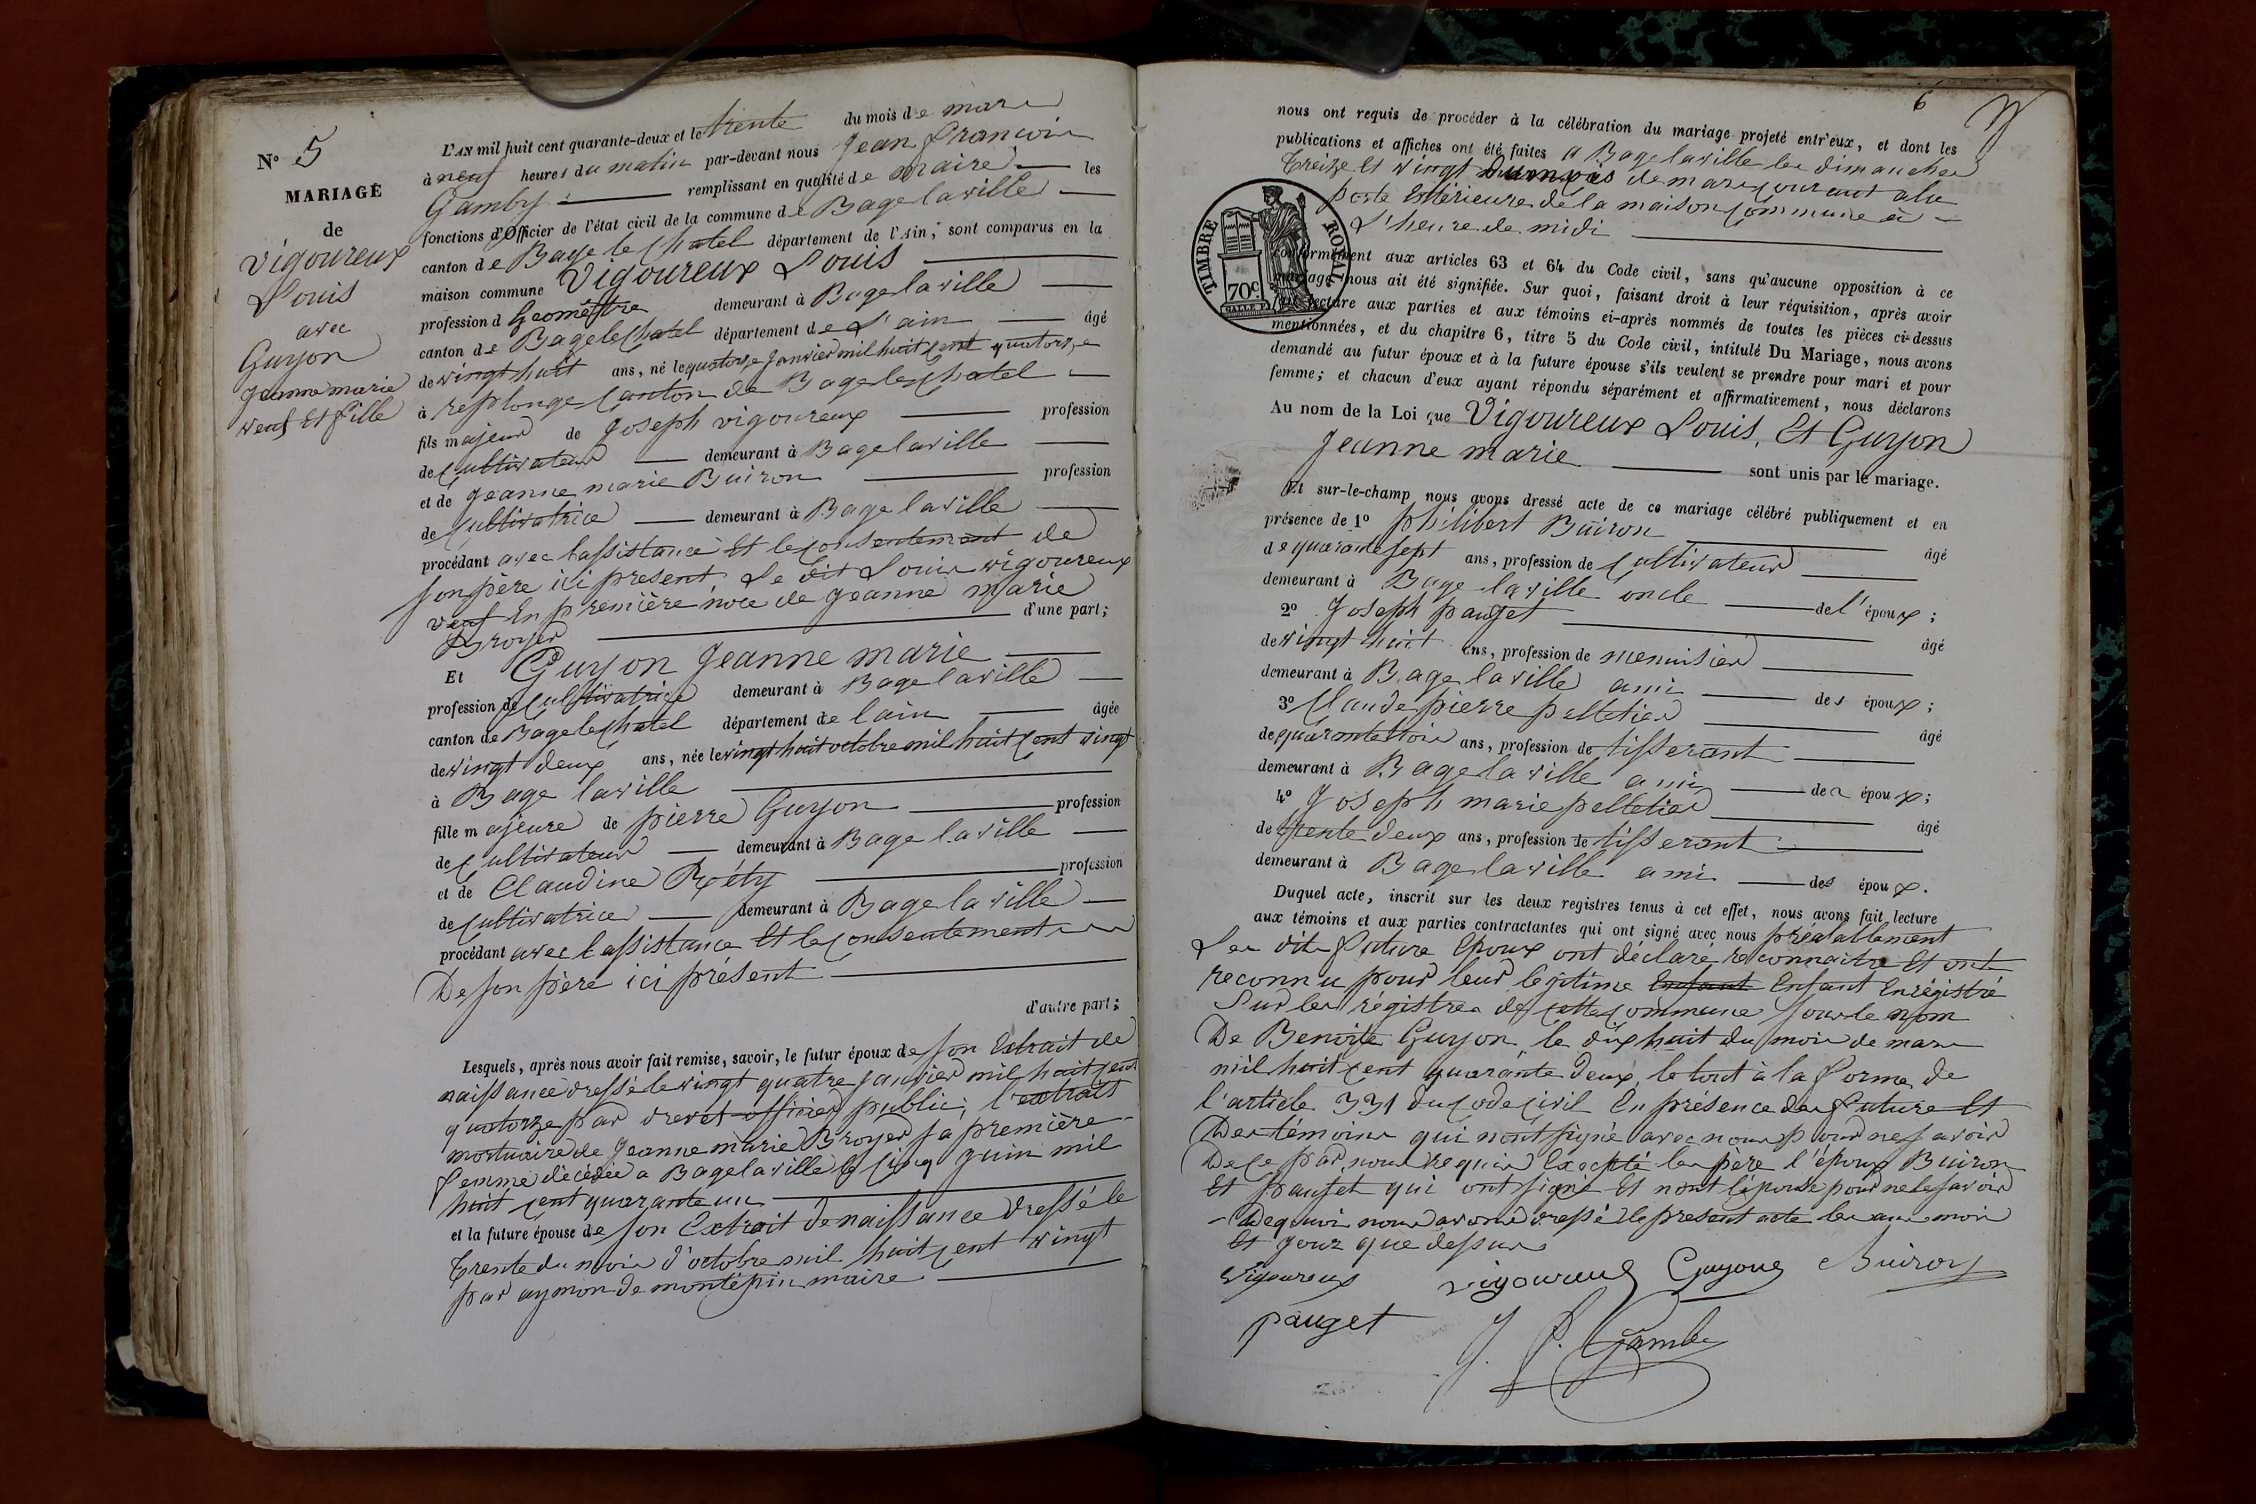 N° 5
MARIAGE
de
Vigoureux
Louis
avec
Guyon
Jeanne marie
veuf Et fille
L'AN mil huit cent quarante-deux et le trente du mois de mars
à neuf heures du matin par-devant nous Jean francois
Gamby remplissant en qualité de maire les
fonctions d'Officier de l'état civil de la commune de Bage la ville
canton de Bage le chatel département de l'Ain, sont comparus en la
maison commune Vigoureux Louis
profession d Geomêttre demeurant à Bage la ville
canton de Bage le Chatel département de L'ain âgé
de vingt huit ans, né le quatorze Janvier mil huit cent quatorze
à replonge Canton de Bage le chatel
fils majeur de Joseph vigoureux profession
de Cultivateur demeurant à Bage la ville
et de Jeanne marie Buiron profession
de Cultivatrice demeurant à Bage la ville
procédant avec l'assistance Et le consentement de
son père ici present. Le dit Louis vigoureux
veuf En première noce de Jeanne marie
Broyer d'une part;
Et Guyon Jeanne marie
profession de Cultivatrice demeurant à Bage la ville
canton de Bage le chatel département de lain âgée
de vingt deux ans, née le vingt huit octobre mil huit cent vingt
à Bage la ville
fille majeure de pierre Guyon profession
de Cultivateur demeurant à Bage la ville
et de Claudine Réty profession
de Cultivatrice demeurant à Bage la ville
procédant avec l'assistance Et le consentement
De son père ici présent
d'autre part;
Lesquels, après nous avoir fait remise, savoir, le futur époux de son Extrait de
naissance dressé le vingt quatre Janvier mil huit cent
quatorze par drevet officier public; l'extrait
mortuaire de Jeanne marie Broyer sa première
femme décédée a Bage la ville le cinq Juin mil
huit cent quarante un
et la future épouse de son Extrait de naissance dressé le
trente du mois d'octobre mil huit cent vingt
par aymon de montépin maire
6
nous ont requis de procéder à la célébration du mariage projeté entr'eux, et dont les
publications et affiches ont été faites a Bage la ville les dimanches
treize Et vingt de mars courant a la
porte Extérieure de la maison commune à
L'heure de midi
TIMBRE ROYAL
70c
conformément aux articles 63 et 64 du Code civil, sans qu'aucune opposition à ce
mariage nous ait été signifiée. Sur quoi, faisant droit à leur réquisition, après avoir
fait lecture aux parties et aux témoins ci-après nommés de toutes les pièces ci-dessus
mentionnées, et du chapitre 6, titre 5 du Code civil, intitulé Du Mariage, nous avons
demandé au futur époux et à la future épouse s'ils veulent se prendre pour mari et pour
femme; et chacun d'eux ayant répondu séparément et affirmativement, nous déclarons
Au nom de la Loi que Vigoureux Louis, Et Guyon
Jeanne marie sont unis par le mariage.
Et sur-le-champ nous avons dressé acte de ce mariage célébré publiquement et en
présence de 1° philibert Buiron âgé
de quarante sept ans, profession de Cultivateur
demeurant à Bage la ville oncle de l'époux;
2° Joseph pauget âgé
de vingt huit ans, profession de menuisier
demeurant à Bage la ville ami des époux;
3° Claude pierre pelletier âgé
de quarante trois ans, profession de tisserant
demeurant à Bage la ville ami des époux;
4° Joseph marie pelletier âgé
de trente deux ans, profession de tisserant
demeurant à Bage la ville ami des époux.
Duquel acte, inscrit sur les deux registres tenus à cet effet, nous avons fait lecture
aux témoins et aux parties contractantes qui ont signé avec nous préalablement
Les dits future Epoux ont déclaré reconnaitre Et ont
reconnu pour leur légitime Enfant Enfant Enrégistré
Sur les régistres de cette commune sous le nom
De Benoite Guyon, le dix huit du mois de mars
mil huit cent quarante deux, le tout à la forme de
l'article 331 du code civil En présence des future Et
Des témoins qui n'ont signé avec nous pour ne savoir
De ce par nous requis Excepté les père l'époux Buiron
Et pauget qui ont signé Et non l'épouse pour ne le savoir
De quoi nous avons dressé le present acte les an mois
Et jour que dessus
Vigoureux vigoureux Guyon Buiron
pauget J. f. Gamby